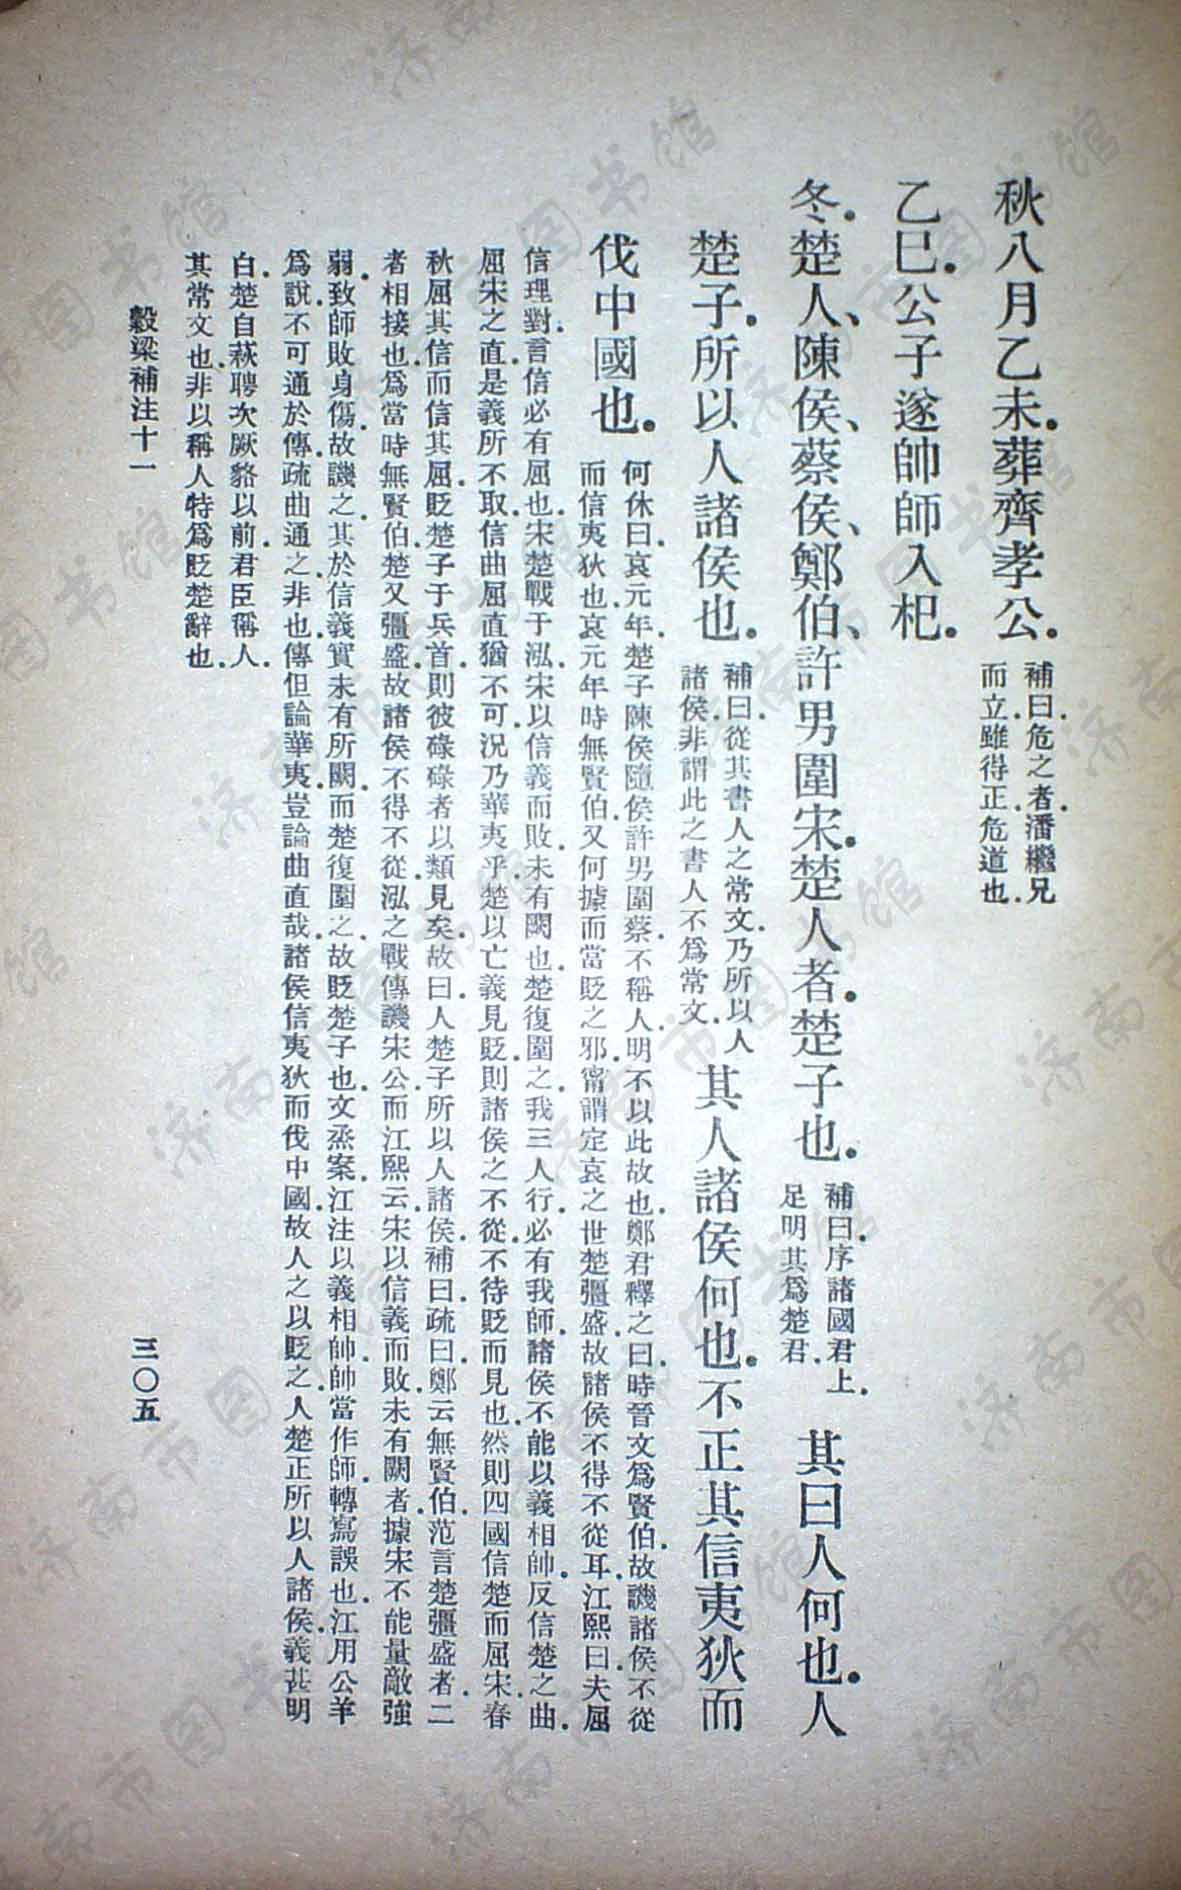 秋八月乙未.葬齊孝公.補曰.危之者.潘繼兄
而立.雖得正.危道也.
乙巳.公子遂帥師入杞.
冬.楚人、陳侯、蔡侯、鄭伯、許男圍宋.楚人者.楚子也.補曰.序諸國君上.
足明其爲楚君.其曰人何也.人
楚子.所以人諸侯也.補曰.從其書人之常文.乃所以人
諸侯.非謂此之書人不爲常文.其人諸侯何也.不正其信夷狄而
伐中國也.何休曰.哀元年.楚子陳侯隨侯許男圍蔡.不稱人.明不以此故也.鄭君釋之曰.時晉文爲賢伯.故譏諸侯不從
而信夷狄也.哀元年時無賢伯.又何據而當貶之邪.甯謂定哀之世楚彊盛.故諸侯不得不從耳.江熙曰.夫屈
信理對.言信必有屈也.宋楚戰于泓.宋以信義而敗.未有闕也.楚復圍之.我三人行.必有我師.諸侯不能以義相帥.反信楚之曲.
屈宋之直.是義所不取.信曲屈直猶不可.況乃華夷乎.楚以亡義見貶.則諸侯之不從.不待貶而見也.然則四國信楚而屈宋.春
秋屈其信而信其屈.貶楚子于兵首.則彼碌碌者以類見矣.故曰.人楚子所以人諸侯.補曰.疏曰.鄭云無賢伯.范言楚彊盛者.二
者相接也.爲當時無賢伯.楚又彊盛.故諸侯不得不從.泓之戰傳譏宋公.而江熙云.宋以信義而敗.未有闕者.據宋不能量敵強
弱.致師敗身傷.故譏之.其於信義實未有所闕.而楚復圍之.故貶楚子也.文烝案.江注以義相帥.帥當作師.轉寫誤也.江用公羊
爲說.不可通於傳.疏曲通之.非也.傳但論華夷.豈論曲直哉.諸侯信夷狄而伐中國.故人之以貶之.人楚正所以人諸侯.義甚明
白.楚自萩聘次厥貉以前.君臣稱人.
其常文也.非以稱人特爲貶楚辭也.
穀梁補注十一
三〇五